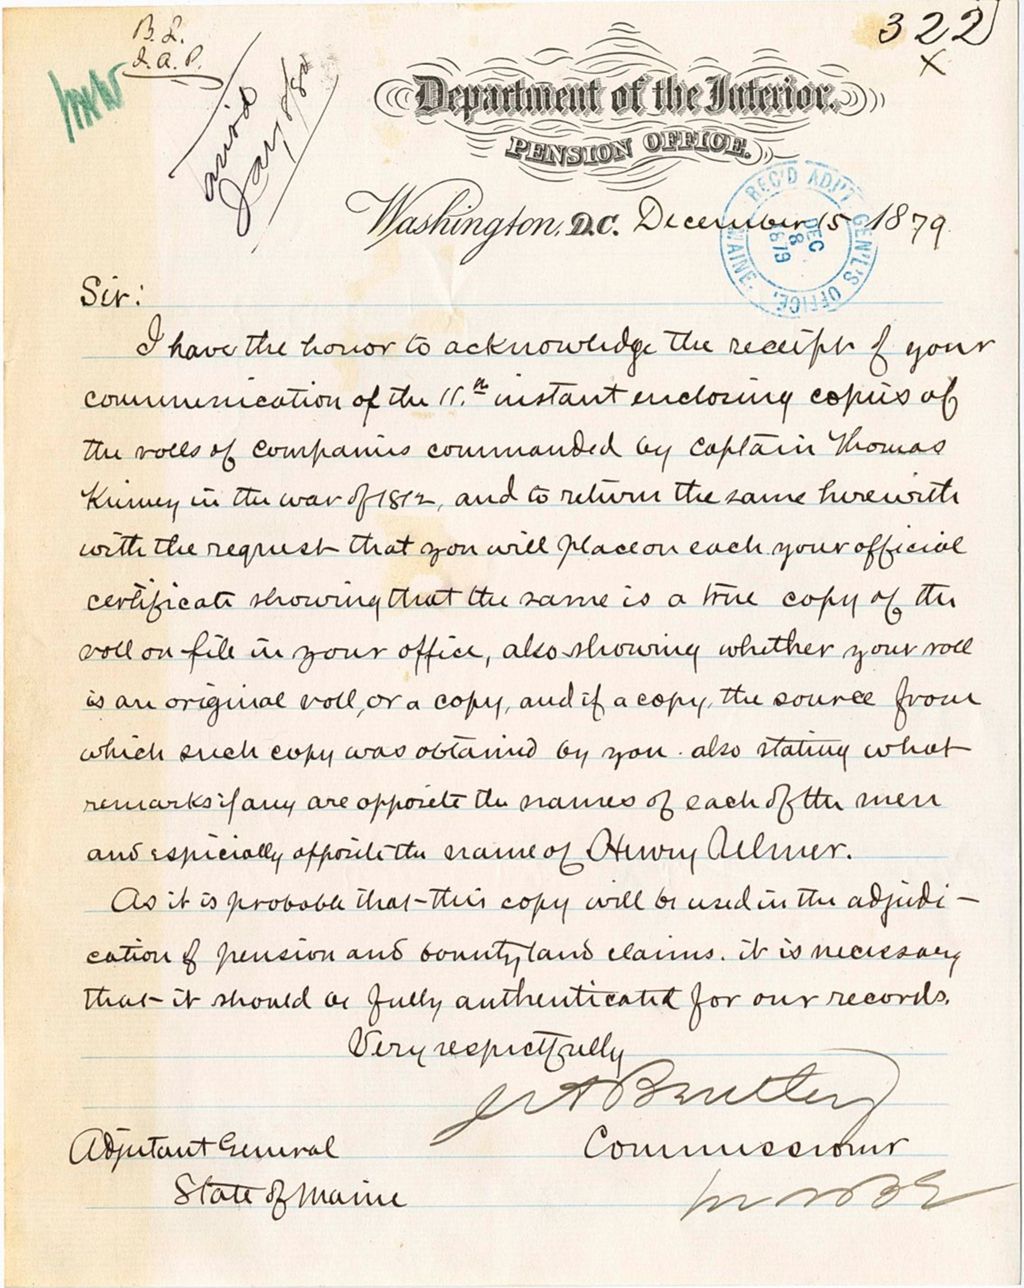 B. L.
J. A. P.
322
x
Jany 8/80
Department of the Interior,
PENSION OFFICE.
Washington, D.C. December 15 1879
REC'D ADJ'T GEN'L'S OFFICE, MAINE.
DEC
18
1879
Sir:
I have the honor to acknowledge the receipt of your
communication of the 11.th instant enclosing copies of
the rolls of companies commanded by Captain Thomas
Kinney in the war of 1812, and to return the same herewith
with the request that you will place on each your official
certificate showing that the same is a true copy of the
roll on file in your office, also showing whether your roll
is an original roll, or a copy, and if a copy, the source from
which such copy was obtained by you. also stating what
remarks if any are opposite the names of each of the men
and especially opposite the name of Henry Ulmer.
As it is probable that this copy will be used in the adjudi-
cation of pension and bounty land claims. it is necessary
that it should be fully authenticated for our records.
Very respectfully
J A Bentley
Adjutant General
Commissioner
State of Maine